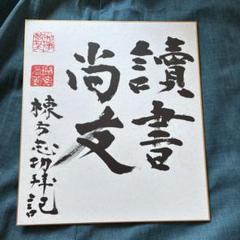 讀書
尚友
棟方志功拜記